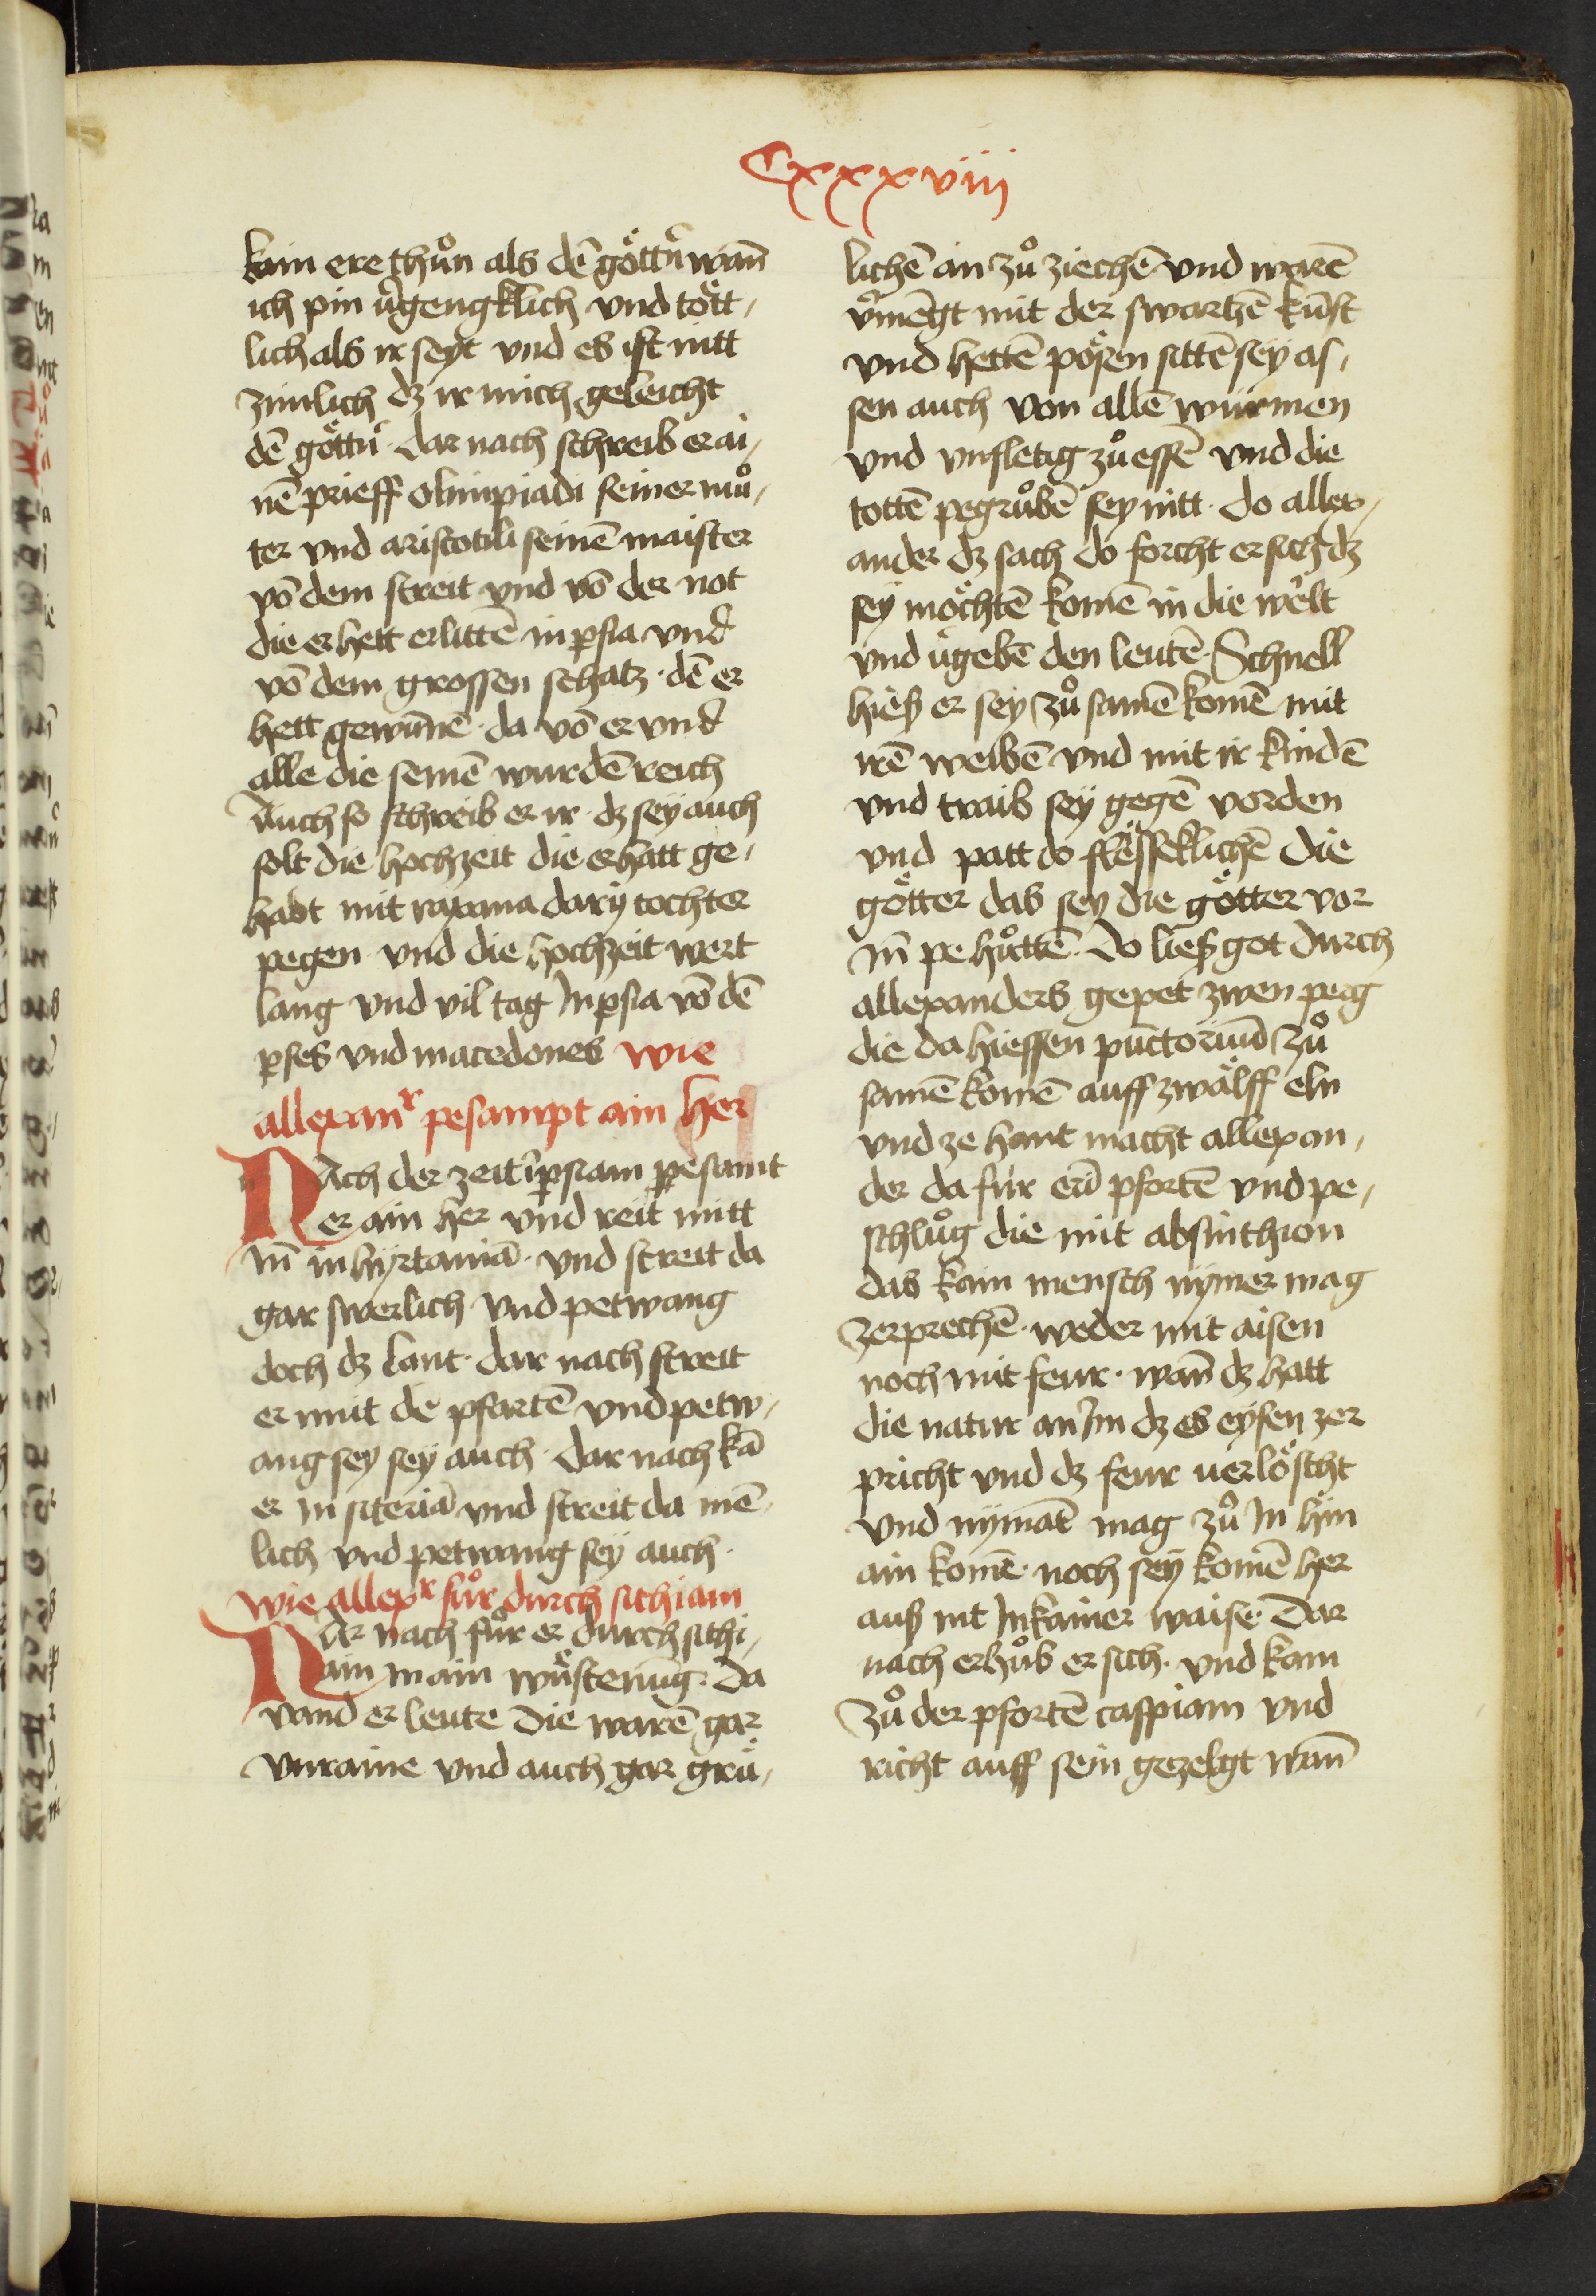 Cxxxviij
kain ere thůn als dē göttn̄ wan̄
ich pin v̄gengklich vnd tött,
lich als ir seyt vnd es ist nitt
zimlich dz ir mich geleicht
dē göttn̄ · dar nach schreib er ai,
nē prieff olimpiadi seiner mů,
ter vnd aristotili seinē maister
vō dem streit vnd vō der not
die er hett erlittē in psia vnd
vō dem grossen schatz · dē er
hett gewūnē · da vō er vnd
alle die seinē wurdē reich
Auch so schreib er ir · dz sey auch
solt die hochzeit die er hatt ge,
habt mit raxana darÿ tochter
pegen vnd die hochzeit wert
lang vnd vil tag in psia vō dē
pses vnd macedones wie
allexanr pesampt ain her
Nach der zeit ī psiam pesamt
er ain her vnd reit mitt
im̄ in hÿrtaniā · vnd streit da
gar swerlich vnd petwang
doch dz lant · dar nach streit
er mit de pfartē vnd petw,
ang sey sey auch · dar nach kā
er in siteriā vnd streit da mē,
lich vnd petwang sey auch ·
wie allexr fůr durch sithiam
Dar nach fůr er durch sithi,
am in ain wüstenūg · da
vand er leute die warē gar
vnraine vnd auch gar grü,
lichē an zů ziechē vnd warē
v̄mēgt mit der swartzē kunst
vnd hettē pösen sittē sey as,
sen auch von allē würmen
vnd vnfletig zů essē vnd die
tottē pegrůbē sey nitt · do allex,
ander dz sach do forcht er sich dz
sey möchtē komē in die welt
vnd v̄gebē den leutē · Schnell
hieß er sey zů samē komē mit
irē weibē vnd mit ir kindē
vnd traib sey gegē vorden
vnd patt do flësseklichē die
götter das sey die götter vor
im̄ pe hůttē · do ließ got durch
allexanders gepet zwen perg
die da hiessen pūctoriūm zů
samē komē auff zwälff eln
vnd ze hant macht allexan,
der da für erī pfortē vnd pe,
schlůg die mit absinthion
das kain mensch nÿmer mag
zerprechē · weder mit aisen
noch mit feur · wan̄ dz hatt
die natur an im dz es eÿsen zer
pricht vnd dz feur verlöscht
vnd nÿmāt mag zů in hin
ain komē · noch sey komē her
auß nit in kainer waise · Dar
nach erhůb er sich · vnd kam
zů der pfortē caspiam vnd
richt auff sein gezelgt wan̄